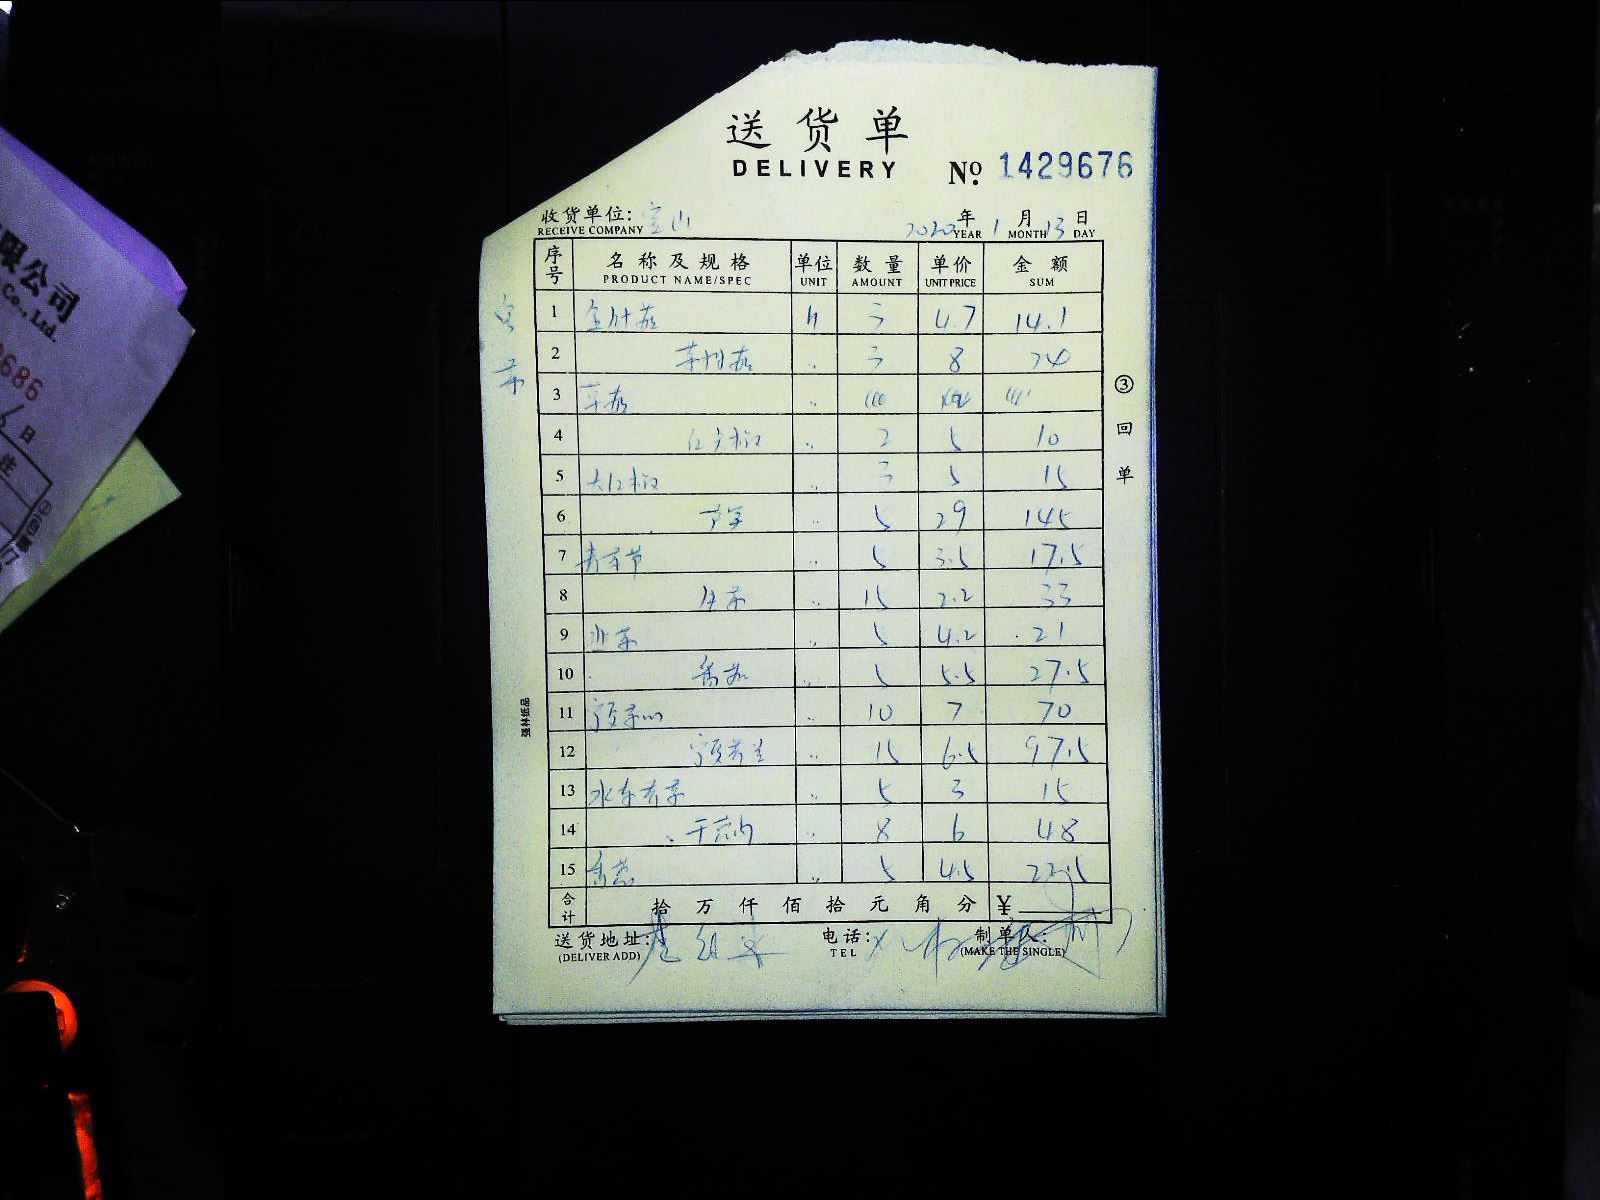 送货单
DELIVERY № 1429676
收货单位: 宝山 2020年 1月 13日
RECEIVE COMPANY YEAR MONTH DAY
序号 名称及规格 单位 数量 单价 金额
PRODUCT NAME/SPEC UNIT AMOUNT UNIT PRICE SUM
1 金针菇 斤 三 4.7 14.1
2 茶树菇 三 8 24
3 草菇
4 红尖椒 2 5 10
5 大红椒 三 5 15
6 5 29 145
7 5 3.5 17.5
8 15 2.2 33
9 韭菜 5 4.2 21
10 5 5.5 27.5
11 宁夏菜心 10 7 70
12 宁夏芥兰 15 6.5 97.5
13 水东芥菜 5 3 15
14 8 6 48
15 香葱 5 4.5 22.5
合计 拾 万 仟 佰 拾 元 角 分 ¥
送货地址: 电话: 制单人:
(DELIVER ADD) TEL (MAKE THE SINGLE)
③回单
强林纸品
限公司
Co., Ltd.
686
日
注